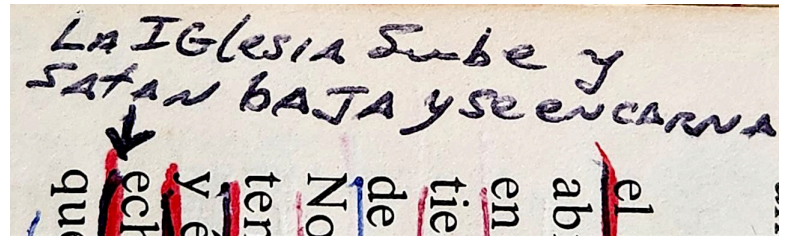 LA IGlesIA Sube y
SAtAN bAJA y se eNCARNA
el
ab
en
tie
de
No
ten
y é
ech
que